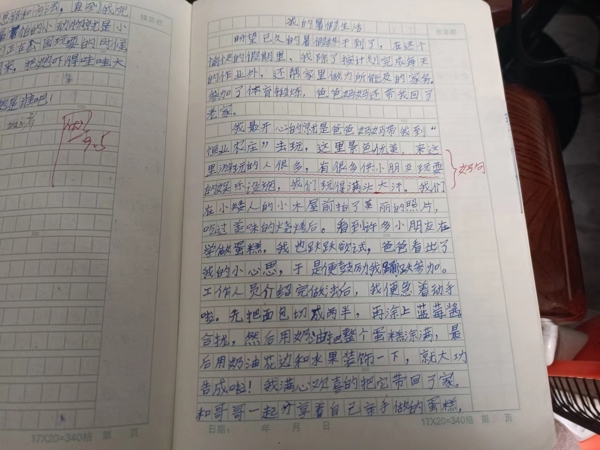 9.5
我的暑假生活
盼望已久的暑假终于到了，在这个
愉快的假期里，我除了按计划完成每天
的作业外，还帮家里做力所能及的家务，
参加了体育锻炼，爸爸妈妈还带我回了
老家。
我最开心的就是爸爸妈妈带我到“
农庄”去玩，这里景色优美，来这
里游玩的人很多，有很多伴小朋友玩耍
的娱乐设施，我们玩得满头大汗。我们
好句
在小矮人的小木屋前拍了美丽的照片，
吃过美味的烧烤后。看到许多小朋友在
学做蛋糕，我也跃跃欲试，爸爸看出了
我的小心思，于是便鼓励我踊跃参加。
工作人员介绍完做法后，我便急着动手
啦。先把面包切成两半，再涂上蓝莓酱
合拢，然后用奶油把整个蛋糕涂满，最
后用奶油花边和水果装饰一下，就大功
告成啦！我满心欢喜的把它带回了家。
和哥哥一起分享着自己亲手做的蛋糕，
17X20=340格 第 页
日期： 年 月 日
17X20=340格 第 页